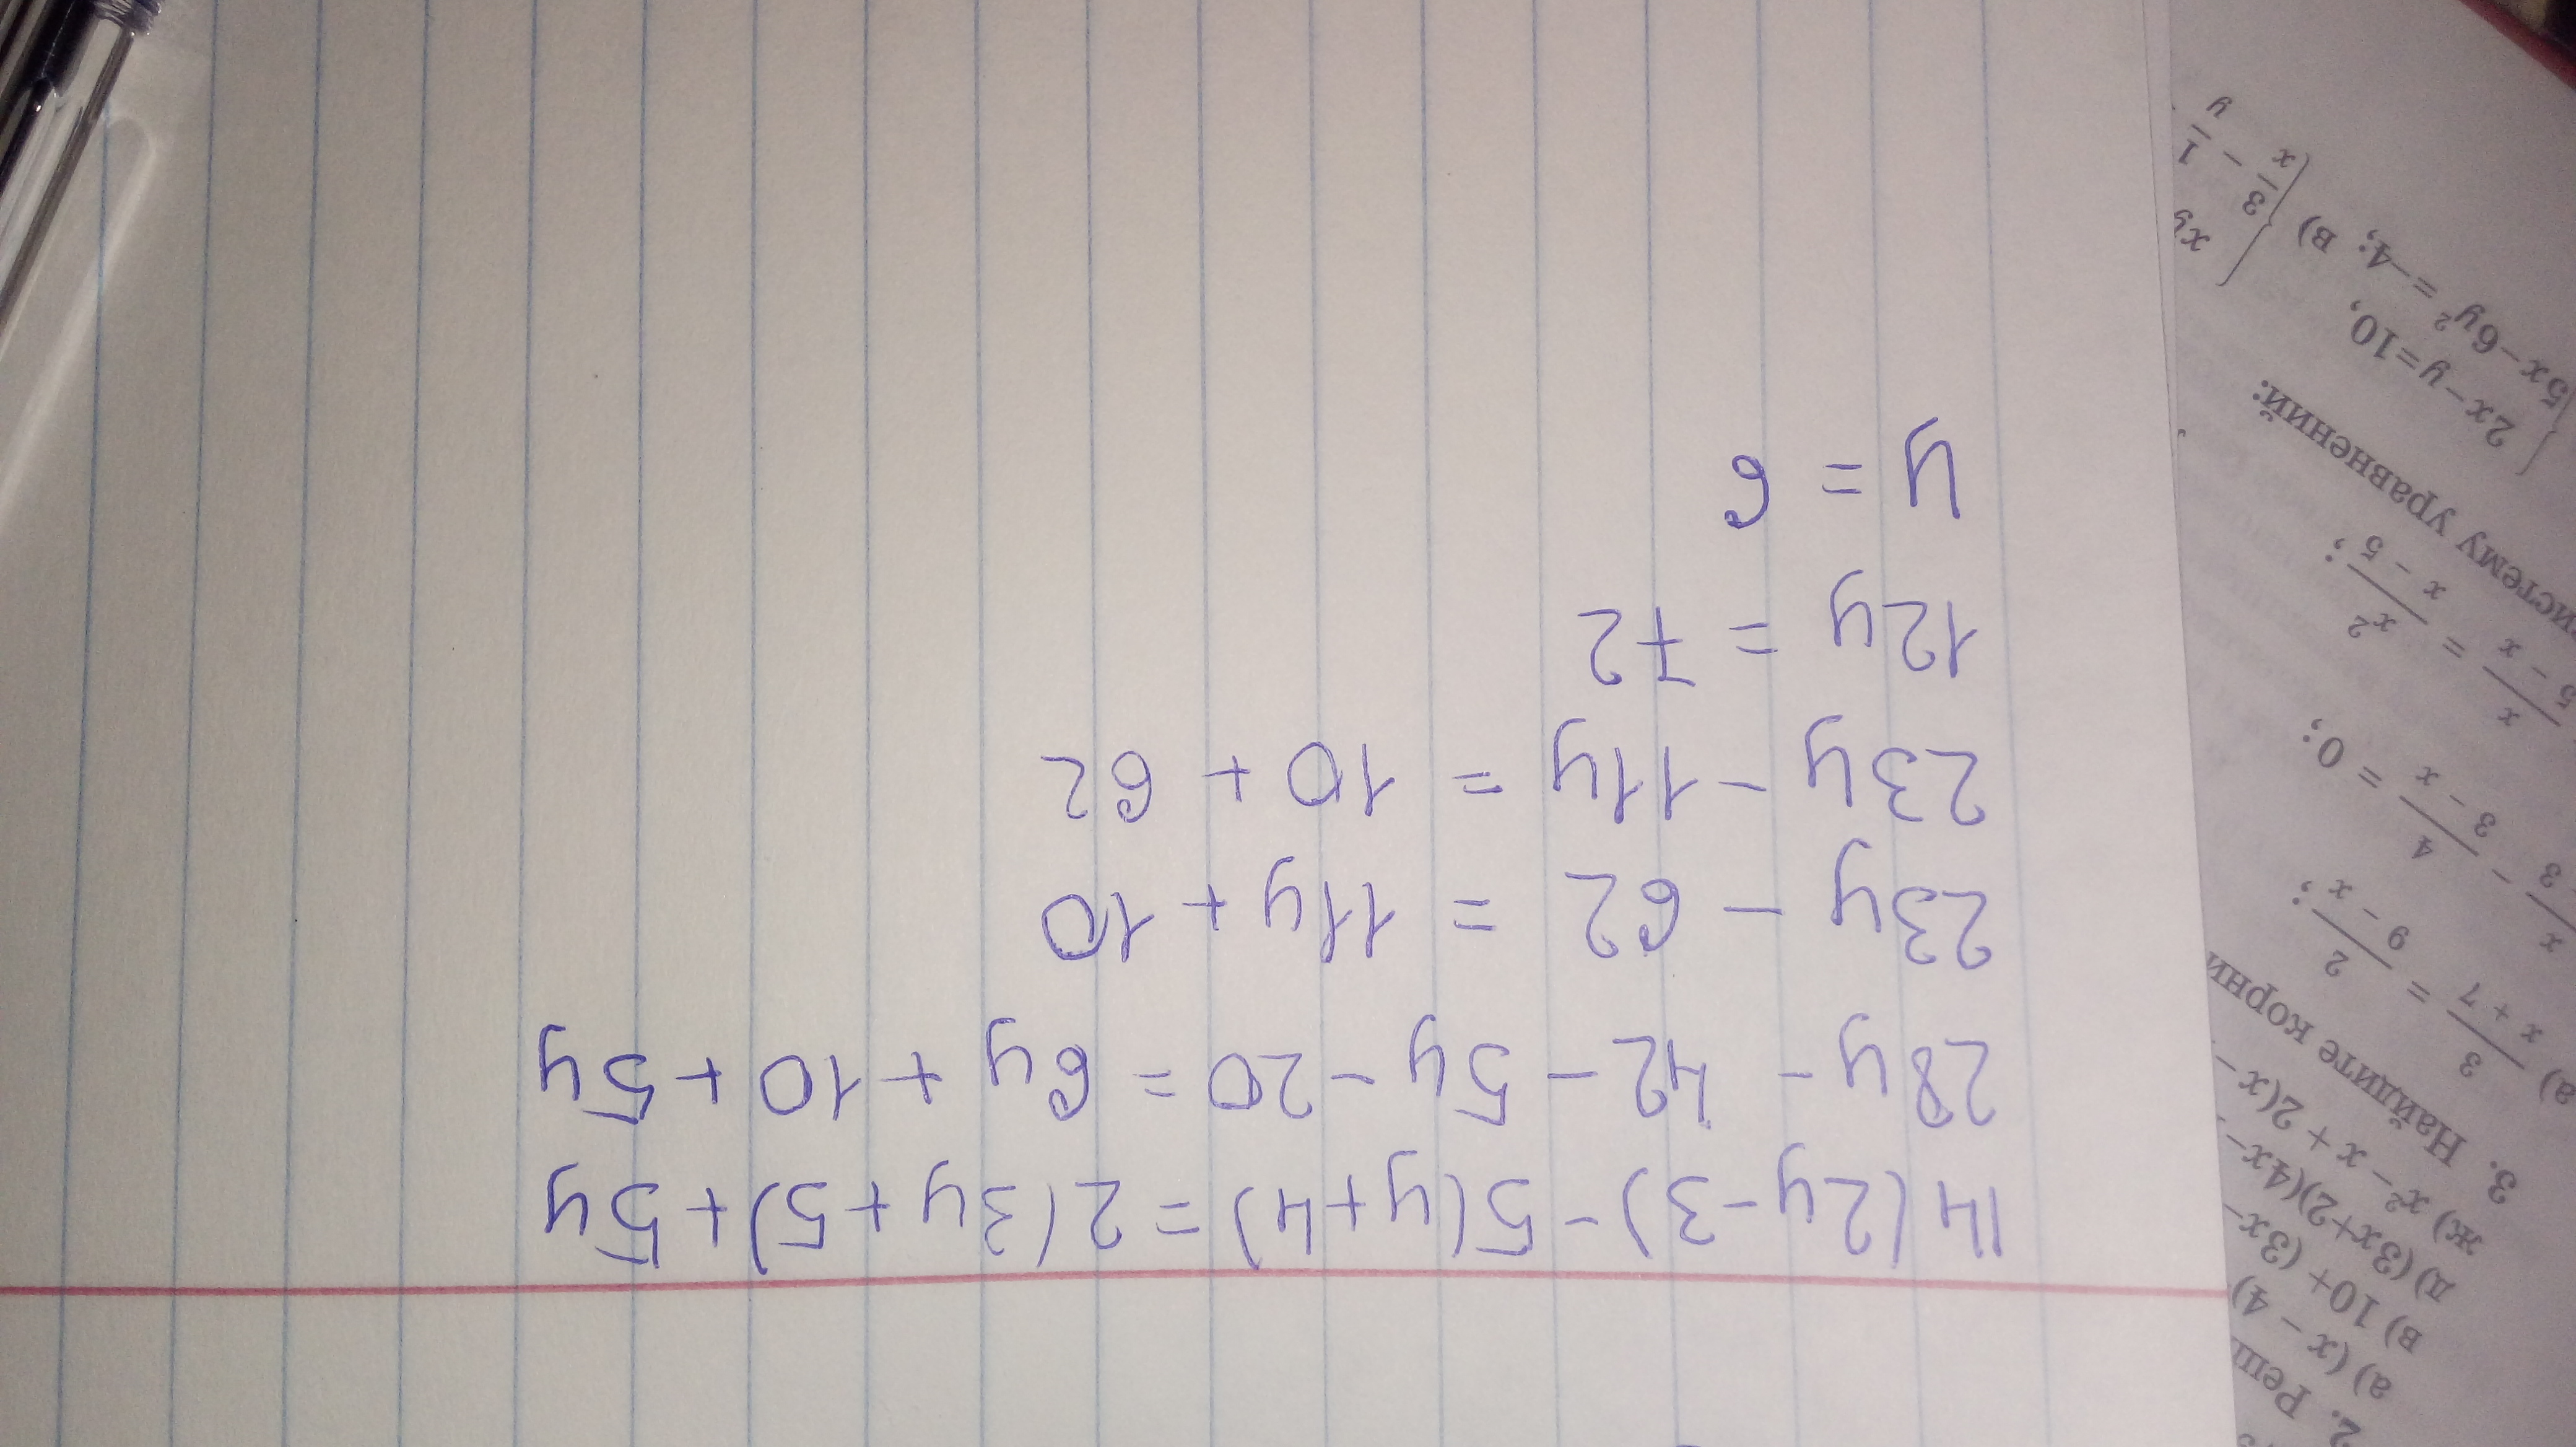 14(2y-3)-5(y+4)=2(3y+5)+5y
28y-42-5y-20=6y+10+5y
23y-62=11y+10
23y-11y=10+62
12y=72
y=6
2. Реш
а) (x - 4)
в) 10+ (3x-
д) (3x+2)(4x-
ж) x² - x + 2(x -
3. Найдите корни
а) 3/(x + 7) = 2/(9 - x);
x/3 - 4/(3 - x) = 0;
x/(5 - x) = x²/(x - 5);
истему уравнений:
{2x-y=10,
{5x-6y²=-4; в) {xy
{3/x - 1/y